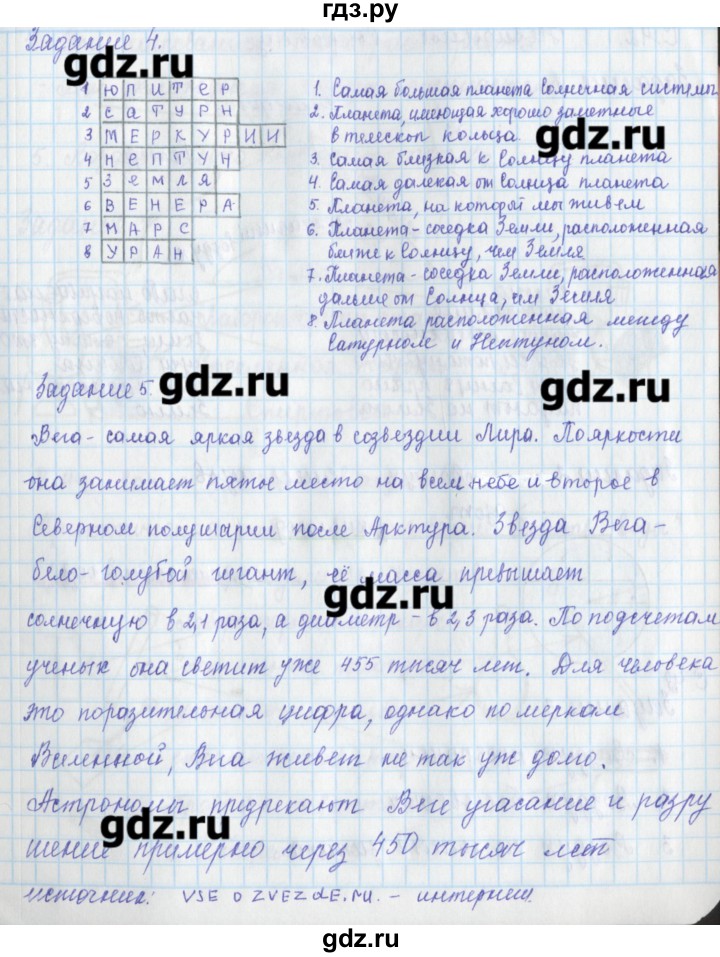 гдз.ру
Задание 4.
gdz.ru
1 ЮПИТЕР
2 САТУРН
3 МЕРКУРИИ
4 НЕПТУН
5 ЗЕМЛЯ
6 ВЕНЕРА
7 МАРС
8 УРАН
1. Самая большая планета Солнечная систем
2. Планета, имеющая хорошо заметные
в телескоп кольца
gdz.ru
3. Самая близкая к Солнцу планета
4. Самая далекая от Солнца планета
5. Планета, на которой мы живем
6. Планета - соседка Земли, расположенная
ближе к Солнцу, чем Земля
7. Планета - соседка Земли, расположенная
дальше от Солнца, чем Земля
8. Планета расположенная между
Сатурном и Нептуном.
Задание 5.
gdz.ru
gdz.ru
Вега - самая яркая звезда в созвездии Лира. По яркости
она занимает пятое место на всем небе и второе в
Северном полушарии после Арктура. Звезда Вега -
бело-голубой гигант, её масса превышает
gdz.ru
солнечную в 2,1 раза, а диаметр - в 2,3 раза. По подсчетам
ученых она светит уже 455 тысяч лет. Для человека
это поразительная цифра, однако по меркам
Вселенной, Вега живет не так уж долго.
Астрономы предрекают Веге угасание и разру
gdz.ru
шение примерно через 450 тысяч лет
источник: VSE O ZVEZDE.RU. - интернет.
gdz.ru